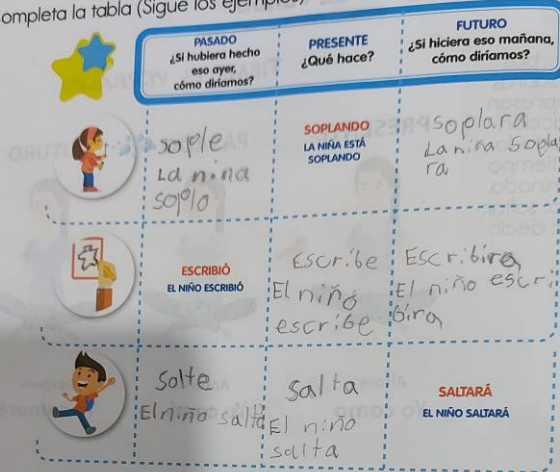 ompleta la tabla (Sigue los ejemplos)
PASADO
¿Si hubiera hecho
eso ayer,
cómo diríamos?
PRESENTE
¿Qué hace?
FUTURO
¿Si hiciera eso mañana,
cómo diríamos?
sople
La nina
soplo
SOPLANDO
LA NIÑA ESTÁ
SOPLANDO
soplara
La niña sopla
ra
ESCRIBIÓ
EL NIÑO ESCRIBIÓ
Escribe
El niño
escribe
Escribira
El niño escri
bira
Salte
El niño salto
Salta
El niño
salta
SALTARÁ
EL NIÑO SALTARÁ